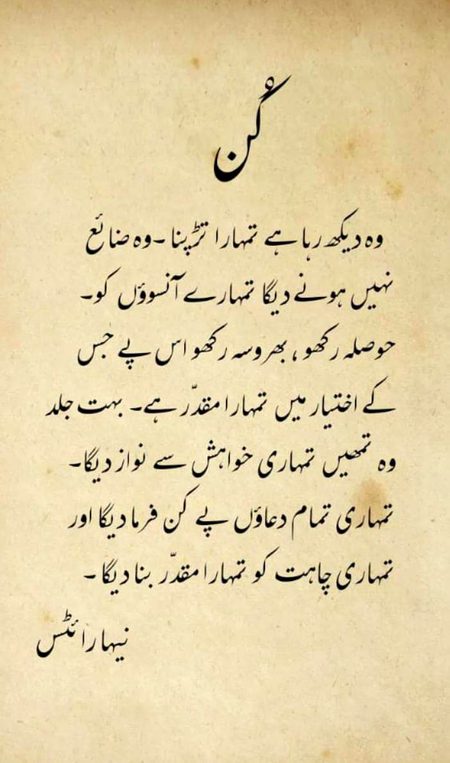 کُن
وہ دیکھ رہا ہے تمہارا تڑپنا۔ وہ ضائع
نہیں ہونے دیگا تمہارے آنسوؤں کو۔
حوصلہ رکھو، بھروسہ رکھو اس پے جس
کے اختیار میں تمہارا مقدّر ہے۔ بہت جلد
وہ تمھیں تمہاری خواہش سے نواز دیگا۔
تمہاری تمام دعاؤں پے کن فرما دیگا اور
تمہاری چاہت کو تمہارا مقدّر بنا دیگا۔
نیہا رائٹس